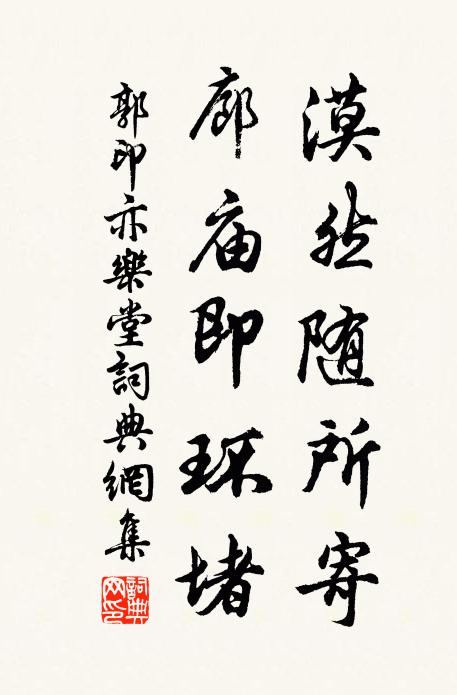 漠然随所寄
廊庙即环堵
郭印亦樂堂詞典網集
詞典网印